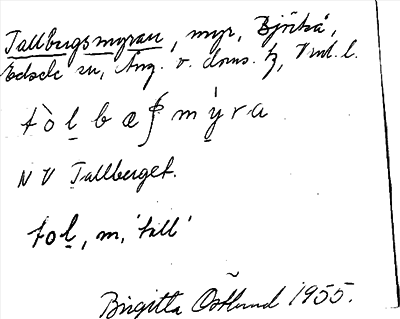 Tallbergsmyran, myr, Björkå,
Edsele sn, Ång. v. doms. hd, Vnl. l.
tòl̲bæʃmỳ̲ra
NV Tallberget.
tol̲, m, 'tall'
Birgitta Östlund 1955.